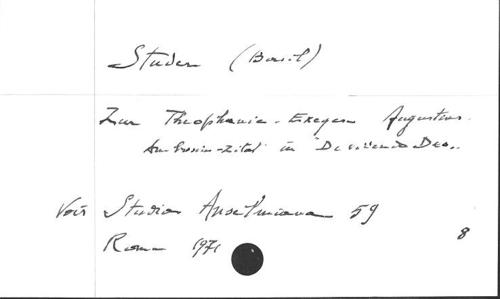 Studer (Basil)
Zur Theophanie-Exegese Augustins.
Ambrosius-Zitat in "De videndo Deo..
Voir Studia Anselmiana 59
Roma 1971
8